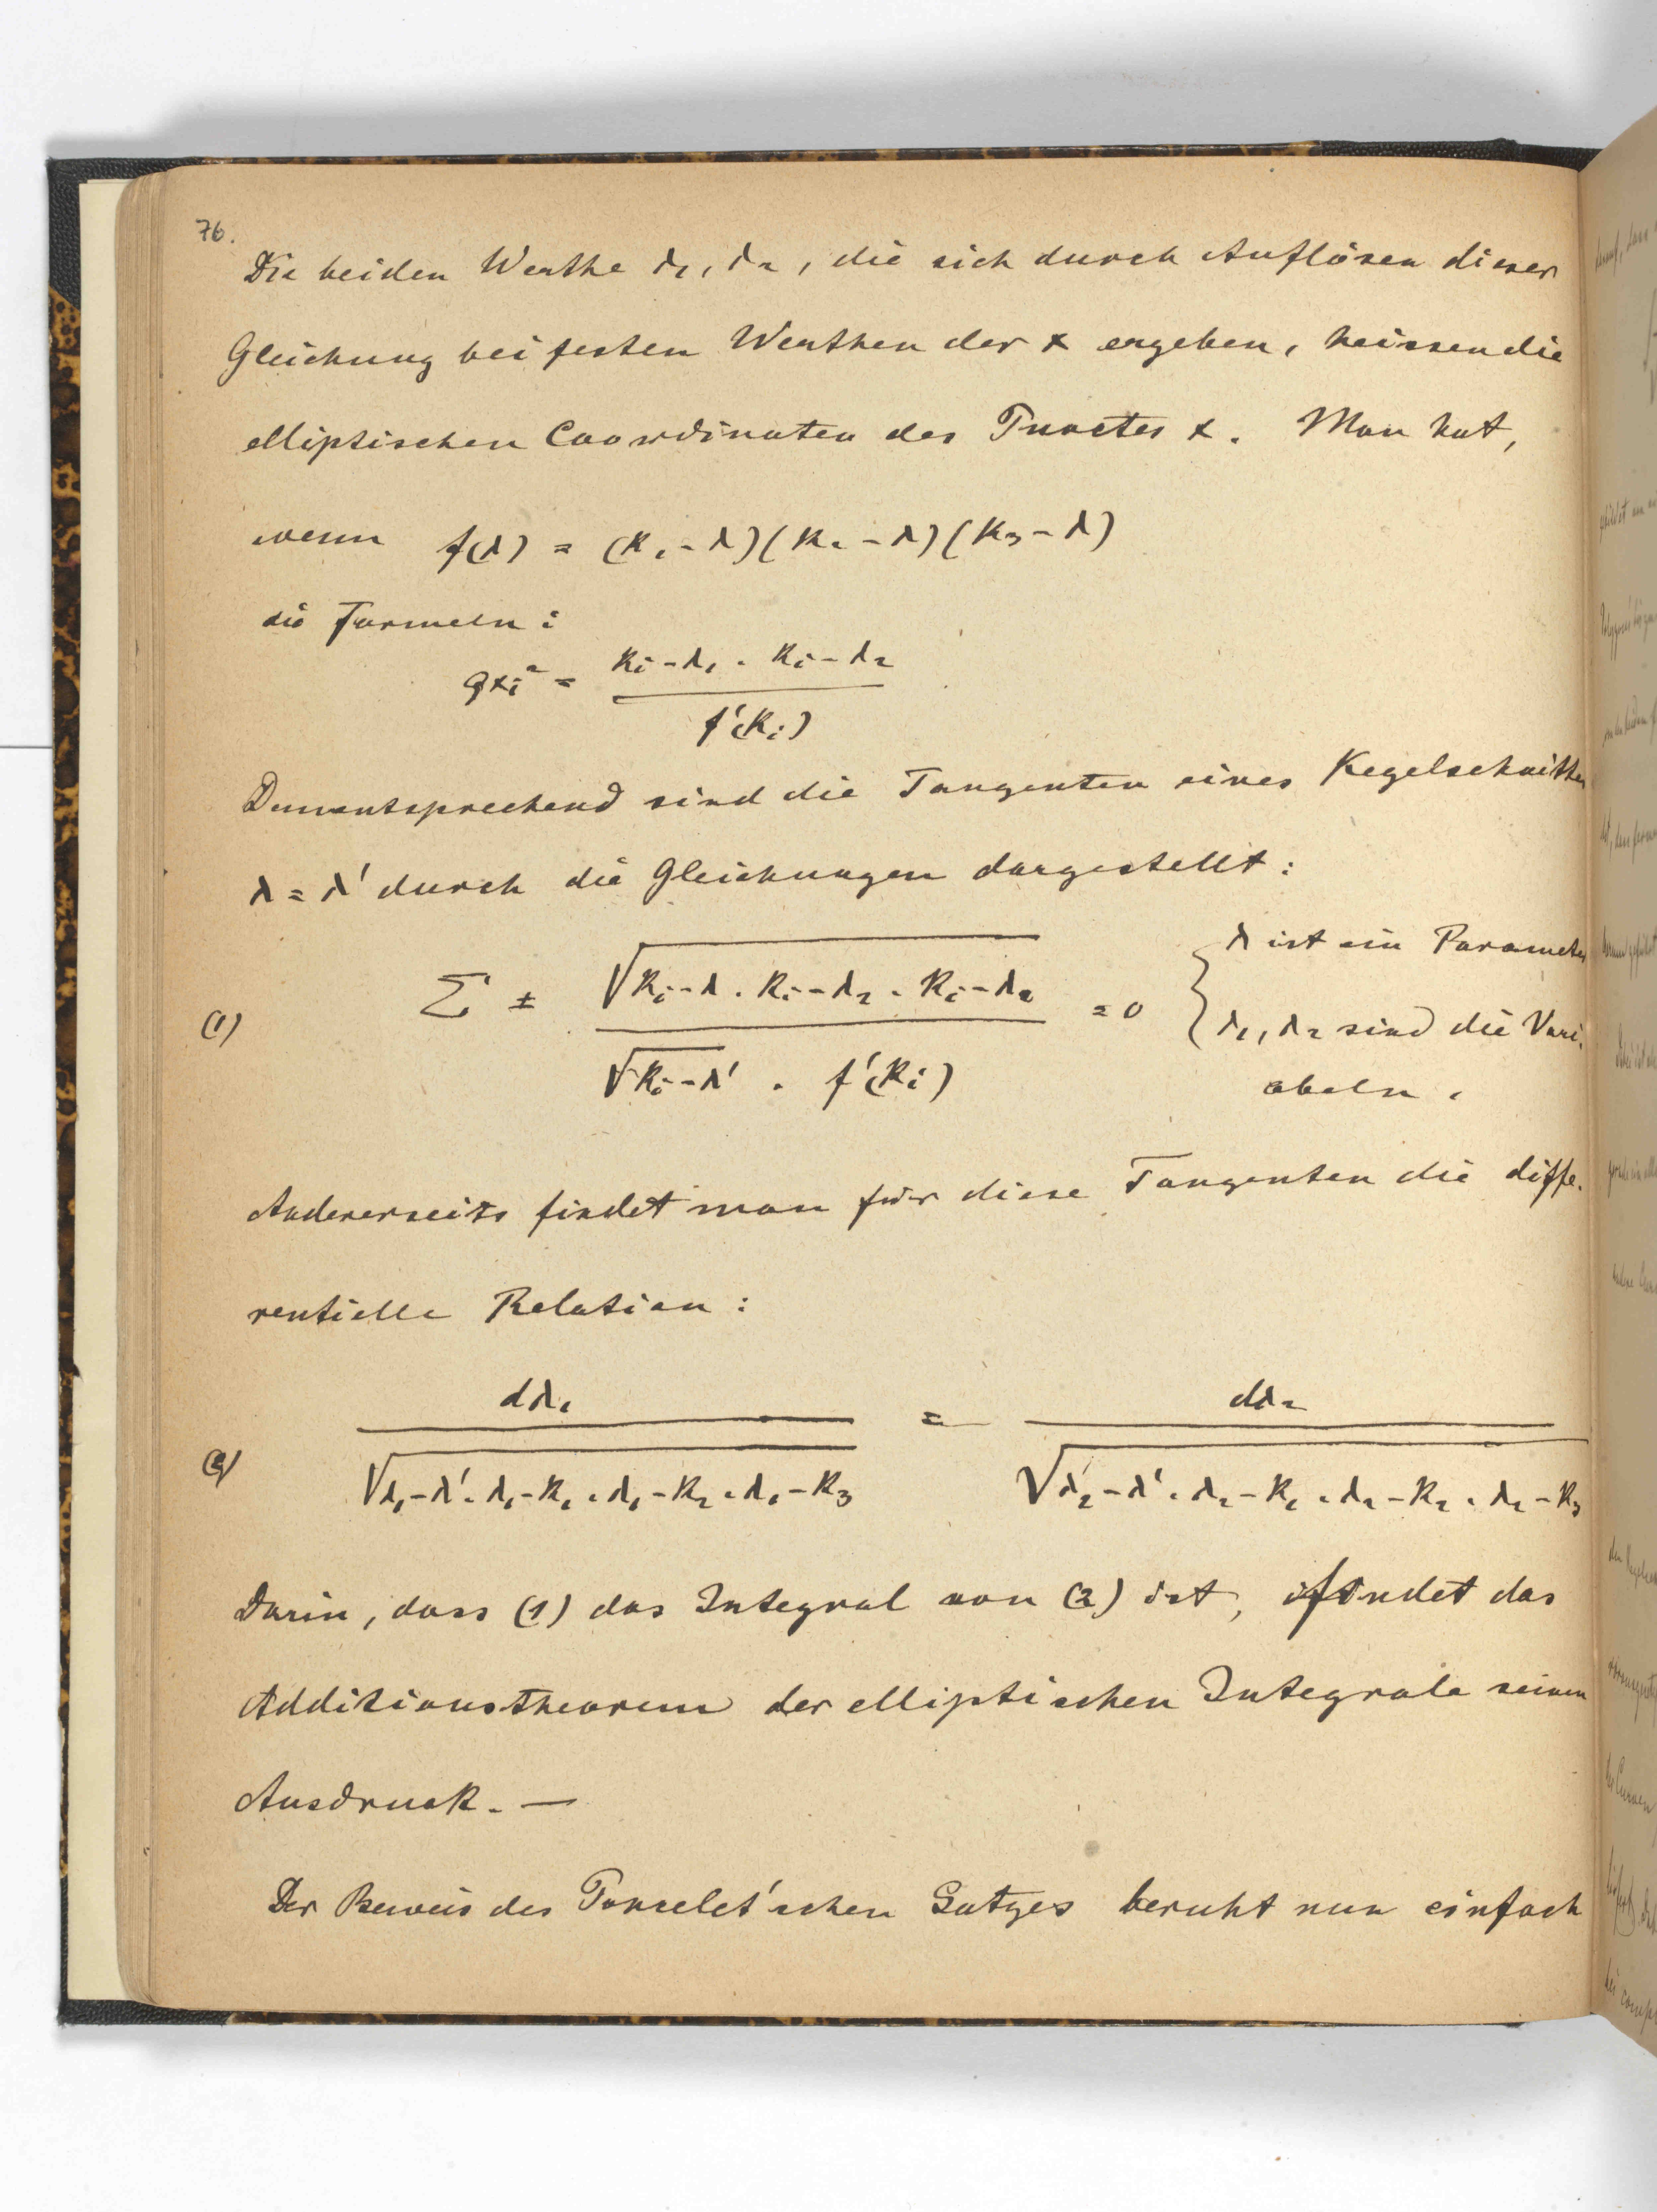 76.
Die beiden Werthe λ₁, λ₂, die sich durch Auflösen dieser
Gleichung bei festen Werthen der x ergeben, heissen die
elliptischen Coordinaten des Punctes x. Man hat,
wenn f(λ) = (k₁-λ)(k₂-λ)(k₃-λ)
die Formeln:
ϱxᵢ² = kᵢ-λ₁ . kᵢ-λ₂
f'(kᵢ)
Dementsprechend sind die Tangenten eines Kegelschnittes
λ = λ' durch die Gleichungen dargestellt:
λ ist ein Parameter
(1) Σ ± √kᵢ-λ . kᵢ-λ₁ . kᵢ-λ₂ = 0
√kᵢ-λ' . f'(kᵢ)
λ₁, λ₂ sind die Vari-
abeln.
Andererseits findet man für diese Tangenten die diffe-
rentielle Relation:
dλ₁ = dλ₂
(2) √λ₁-λ' . λ₁-k₁ . λ₁-k₂ . λ₁-k₃ √λ₂-λ' . λ₂-k₁ . λ₂-k₂ . λ₂-k₃
Darin, dass (1) das Integral von (2) ist, findet das
Additionstheorem der elliptischen Integrale seinen
Ausdruck. —
Der Beweis des Poncelet'schen Satzes beruht nun einfach